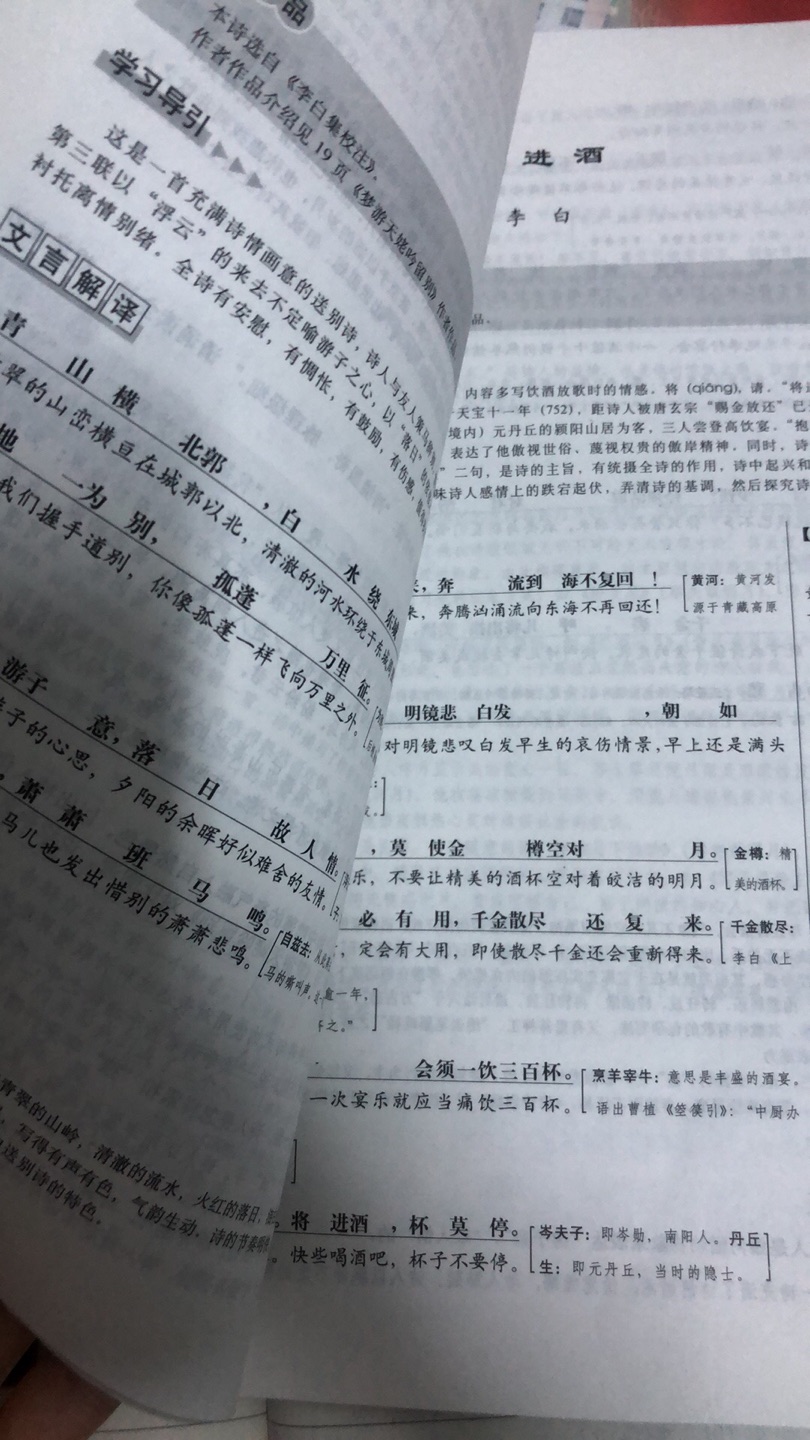 品
本诗选自《李白集校注》。
作者作品介绍见19页《梦游天姥吟留别》作者作品
学习导引
这是一首充满诗情画意的送别诗，诗人与友人策马
第三联以“浮云”的来去不定喻游子之心，以“落日”
衬托离情别绪。全诗有安慰，有惆怅，有鼓励，有伤感，
文言解译
青 山 横 北郭 ，白 水 绕 东城
翠的山峦横亘在城郭以北，清澈的河水环绕于东城
地 一为 别， 孤蓬 万里 征。
我们握手道别，你像孤蓬一样飞向万里之外。
游子 意，落 日 故 人 情。
子的心思，夕阳的余晖好似难舍的友情。
，萧 萧 班 马 鸣。
马儿也发出惜别的萧萧悲鸣。
自兹去：
马的嘶叫声，
青翠的山岭，清澈的流水，火红的落日，
，写得有声有色，气韵生动。诗的节奏明
送别诗的特色。
进 酒
李 白
品。
内容多写饮酒放歌时的情感。将 (qiāng)，请。“将进
天宝十一年 (752)，距诗人被唐玄宗“赐金放还”已
境内）元丹丘的颖阳山居为客，三人尝登高饮宴。“抱
表达了他傲视世俗、蔑视权贵的傲岸精神，同时，诗
”二句，是诗的主旨，有统摄全诗的作用，诗中起兴和
味诗人感情上的跌宕起伏，弄清诗的基调，然后探究诗
来，奔 流到 海不复回 ！
黄河：黄河发
来，奔腾汹涌流向东海不再回还！
源于青藏高原
明镜悲 白发 ，朝 如
对明镜悲叹白发早生的哀伤情景，早上还是满头
，莫 使金 樽空对 月。
金樽：精
乐，不要让精美的酒杯空对着皎洁的明月。
美的酒杯。
必 有 用，千金散尽 还 复 来。
千金散尽：
，定会有大用，即使散尽千金还会重新得来。
李白《上
一年，
之。”
会须一饮三百杯。
烹羊宰牛：意思是丰盛的酒宴。
一次宴乐就应当痛饮三百杯。
语出曹植《箜篌引》：“中厨办
，将 进酒 ，杯 莫 停。
岑夫子：即岑勋，南阳人。丹丘
。快些喝酒吧，杯子不要停。
生：即元丹丘，当时的隐士。